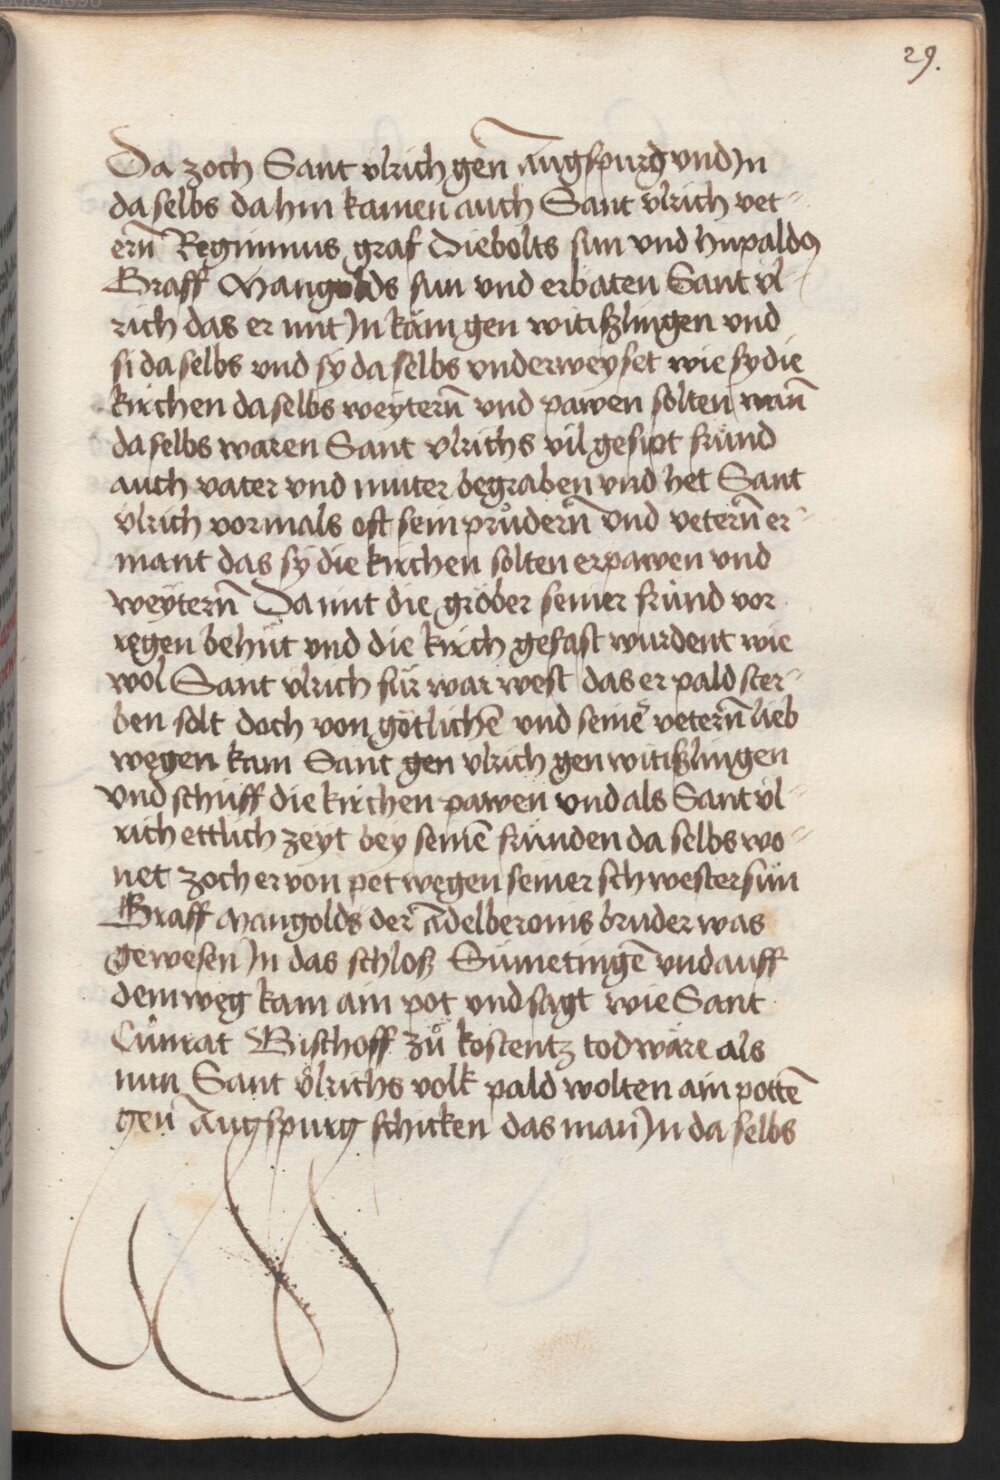 29.
Da zoch Sant vlrich gen Augspurg vnd Jn
da selbs da hin kamen auch Sant vlrich vet-
ern̄ Regininus graf Diebolts sun vnd hupaldq
Graff Mangolds sun vnd erbaten Sant vl-
rich das er mit Jn käm gen witißlingen vnd
si da selbs vnd sy da selbs vnderweyset wie sy die
kirchen da selbs weytern̄ vnd pawen solten wan̄
da selbs waren Sant vlrichs vil gesipt fründ
auch vater vnd muter begraben vnd het Sant
vlrich vormals oft sein průdern̄ vnd vetern̄ er-
mant das sy die kirchen solten erpawen vnd
weytern̄ Da mit die gröber seiner fründ vor
regen behüt vnd die kirch gefast wurdent wie
wol Sant vlrich für war west das er pald ster-
ben solt doch von götlichē vnd seinē vetern̄ lieb
wegen kam Sant gen vlrich gen witißlingen
vnd schuff die kirchen pawen vnd als Sant vl-
rich ettlich zeyt bey seinē fründen da selbs wo-
net zoch er von pet wegen seiner schwester sun
Graff Mangolds der Adelberonis bruder was
gewesen Jn das schloß Sumetingē vnd auff
dem weg kam ain pot vnd sagt wie Sant
Cůnrat Bischoff zů kostentz tod wäre als
nun Sant vlrichs volk pald wolten ain pottē
gen Augspurg schicken das man Jn da selbs